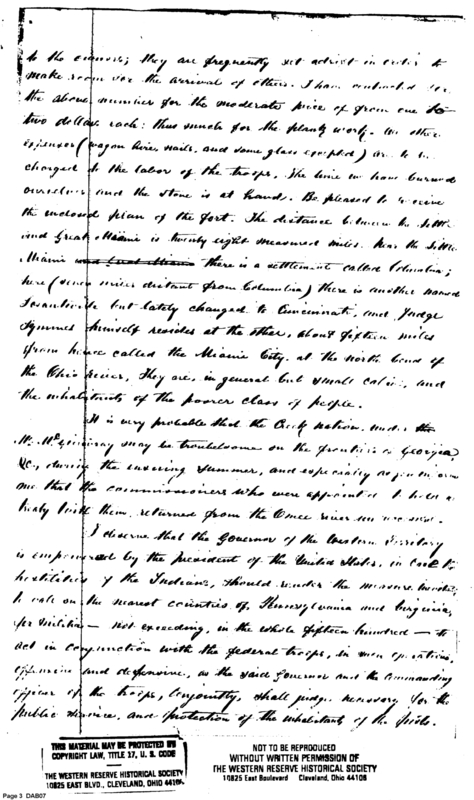 to the owners; they are frequently set adrift in order to
make room for the arrival of others. I have contracted for
the above number for the moderate price of from one to
two dollars each: thus much for the plank work. All other
expenses (wagon hire, nails, and some glass excepted) are to be
charged to the labor of the troops. The lime we have burned
ourselves and the stone is at hand. Be pleased to receive
the inclosed plan of the fort. The distance between the little
and Great Miami is twenty eight measured miles. Near the little
Miami there is a settlement called Columbia;
here (seven miles distant from Columbia) there is another named
Losantiville but lately changed to Cincinnati, and Judge
Symmes himself resides at the other, about fifteen miles
from hence called the Miami City, at the north bend of
the Ohio river. They are, in general but small cabins, and
the inhabitants of the poorer class of people.
It is very probable that the Creek nation, under the
Mr. McGillivray may be troublesome on the frontiers of Georgia
&c., during the ensuing summer, and especially as you inform
me that the commissioners who were appointed to hold a
treaty with them, returned from the river
I observe that the Governor of the Western Territory
is empowered by the president of the United States, in case
hostilities of the Indians, should render the measure
to call on the nearest counties of, Pennsylvania and Virginia,
for militia — not exceeding, in the whole fifteen hundred — to
act in conjunction with the federal troops, in such operations,
offensive and defensive, as the said Governor and the commanding
officer of the troops, conjointly, shall judge necessary for the
public service, and protection of the inhabitants of the posts.
THIS MATERIAL MAY BE PROTECTED BY
COPYRIGHT LAW, TITLE 17, U. S. CODE
THE WESTERN RESERVE HISTORICAL SOCIETY
10825 EAST BLVD., CLEVELAND, OHIO 44106
NOT TO BE REPRODUCED
WITHOUT WRITTEN PERMISSION OF
THE WESTERN RESERVE HISTORICAL SOCIETY
10825 East Boulevard Cleveland, Ohio 44106
Page 3 DAB07